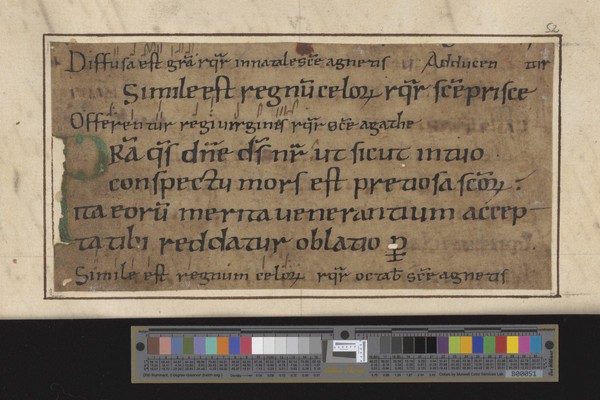 52
Diffusa est grã rqr̃ in natale sc̃e agnetis Adducen tur
Simile est regnũ celoꝝ rqr̃ sc̃e prisce
Offerentur regi uirgines rqr̃ sc̃e agathe
P RÃ qs̃ dñe ds̃ nr̃ ut sicut in tuo
conspectu mors est pretiosa sc̃oꝝ :
ita eorũ merita uenerantium accep
ta tibi reddatur oblatio ꝑ
Simile est regnum celoꝝ rqr̃ octab̃ sc̃e agnetis
800051